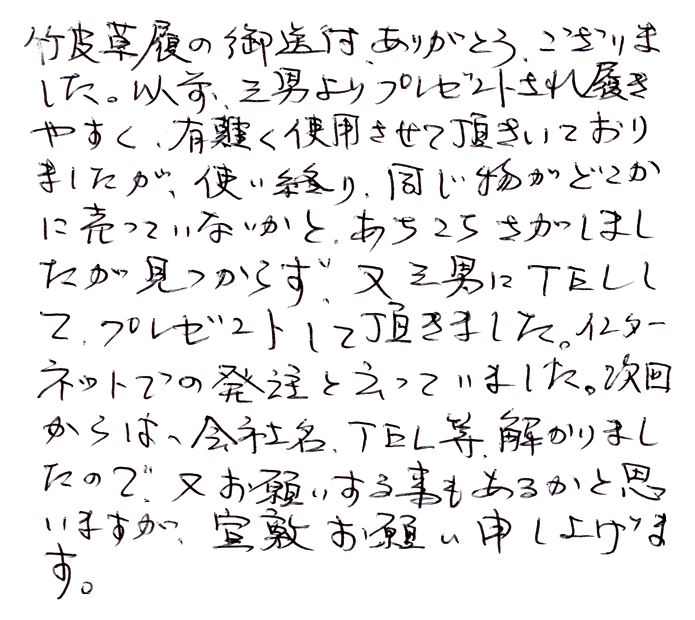 竹皮草履の御送付、ありがとう、ござりま
した。以前、三男よりプレゼントされ履き
やすく、有難く使用させて頂きいており
ましたが、使い終り、同じ物がどこか
に売っていないかと、あちこちさがしまし
たが見つからず、又三男にTELし
て、プレゼントして頂きました。インター
ネットでの発注と云っていました。次回
からは、会社名、TEL等、解かりまし
たので、又お願いする事もあるかと思
いますが、宜敷お願い申し上げま
す。